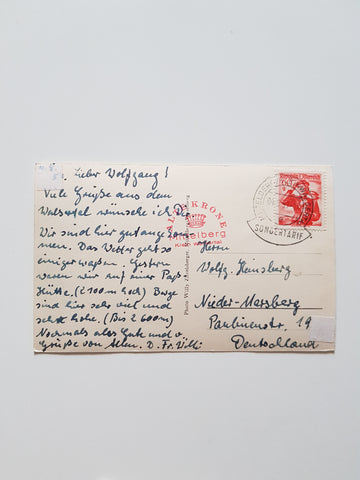 Lieber Wolfgang!
Viele Grüße aus dem
Walsertal wünsche ich Dir.
Wir sind hier gut angekom-
men. Das Wetter geht so
einigermaßen. Gestern
waren wir auf einer Paß-
Hütte. (2100 m hoch) Berge
sind hier sehr viel und
sehr hohe. (Bis 2600m)
Nochmals alles Gute und
Grüße von Allen. D. Fr. Willi
KRONE
Hirschegg
Klein Walsertal
Photo Willy
SONDERTARIF
Herrn
Wolfg. Heinsberg
Nieder-Marsberg
Paulinenstr. 19
Deutschland